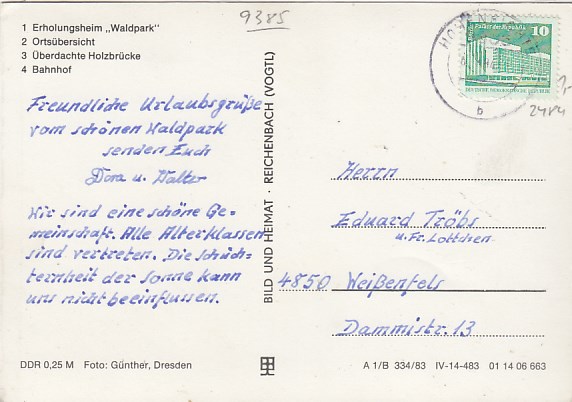 9385
1 Erholungsheim „Waldpark"
2 Ortsübersicht
3 Überdachte Holzbrücke
4 Bahnhof
Freundliche Urlaubsgrüße
vom schönen Waldpark
senden Euch
Dora u. Walter
Wir sind eine schöne Ge=
meinschaft. Alle Altersklassen
sind vertreten. Die Schüch-
ternheit der Sonne kann
uns nicht beeinflussen.
DDR 0,25 M Foto: Günther, Dresden
BILD UND HEIMAT · REICHENBACH (VOGTL)
10
b
2484
Herrn
Eduard Tröbs
u. Fr. Lottchen
4850 Weißenfels
Dammstr. 13
A 1/B 334/83 IV-14-483 01 14 06 663